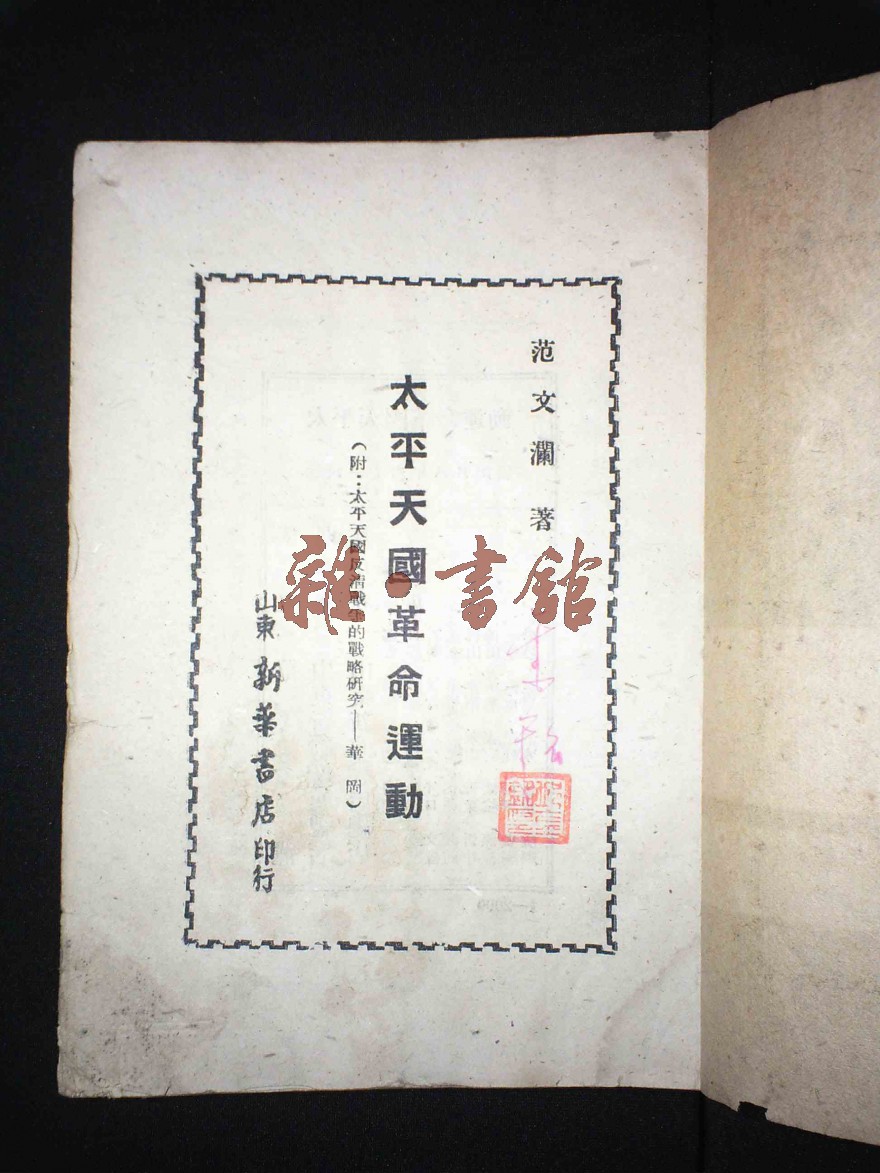 范文瀾著
太平天國革命運動
(附：太平天國反清戰爭的戰略研究——華岡)
山東新華書店印行
雜·書館